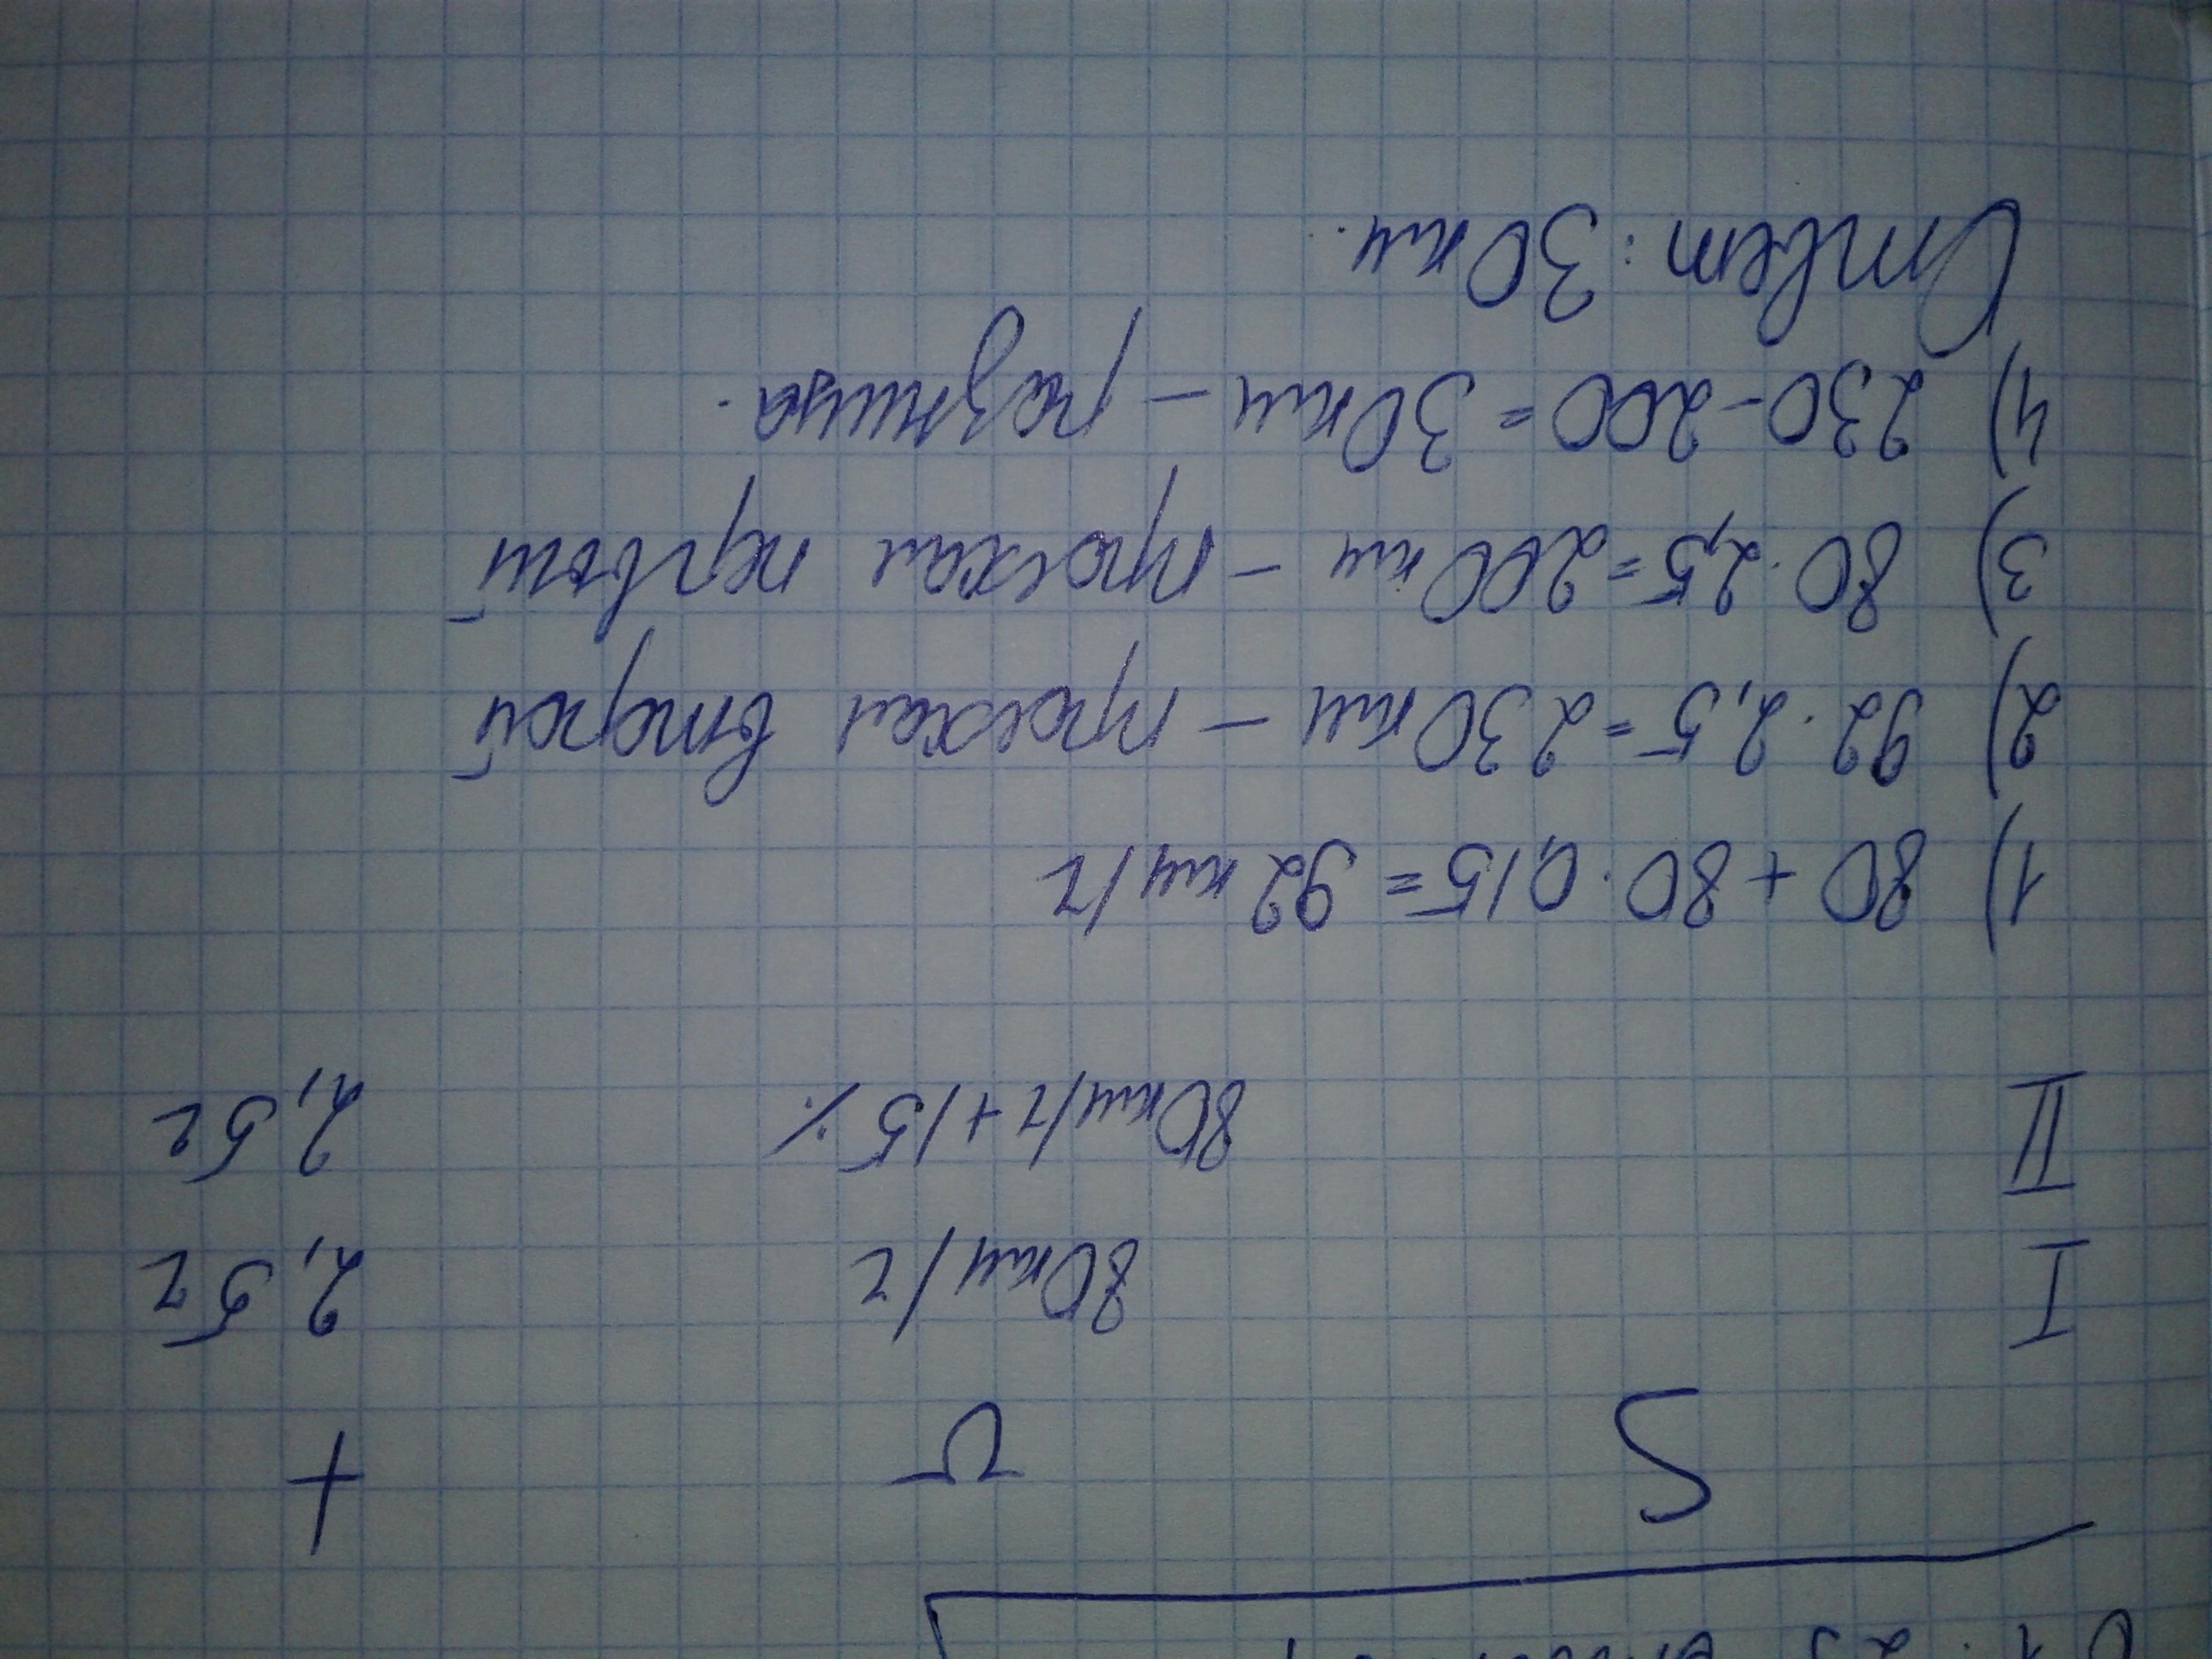 S v t
I 80км/ч 2,5ч
II 80км/ч+15% 2,5ч
1) 80+80·0,15=92км/ч
2) 92·2,5=230км – проехал второй
3) 80·2,5=200км – проехал первый
4) 230-200=30км – разница.
Ответ: 30км.